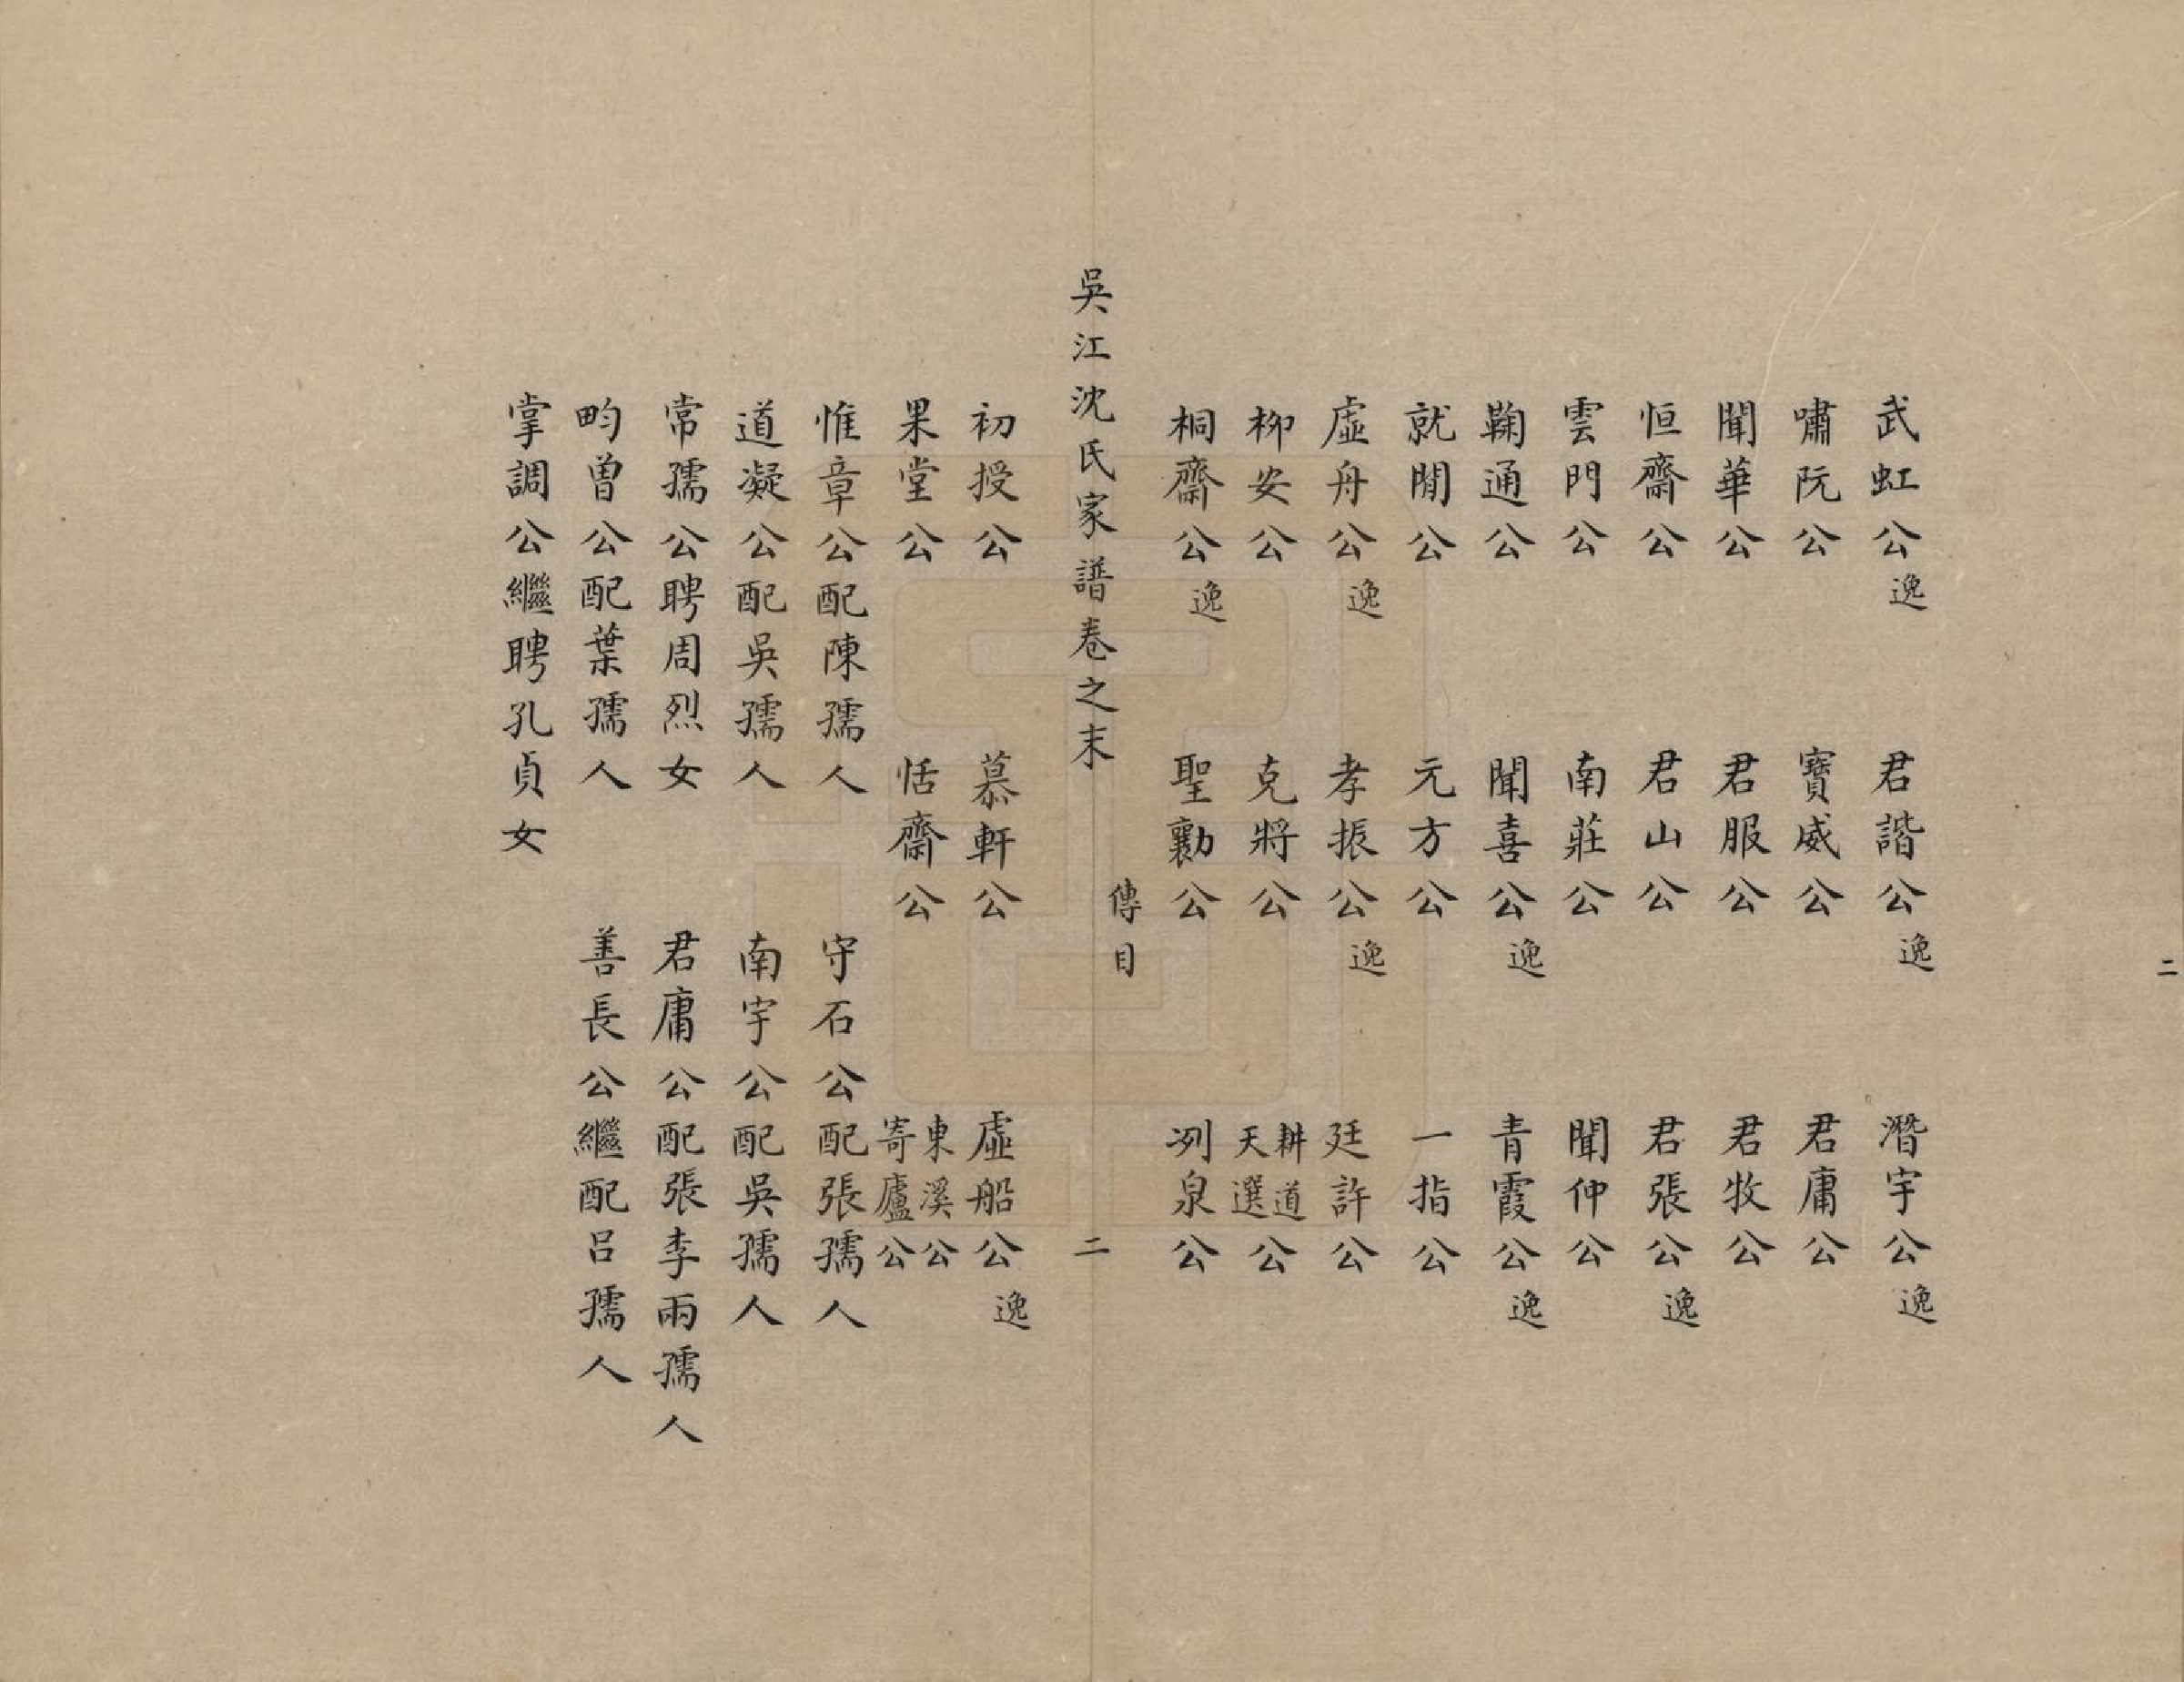 武虹公逸　君諧公逸　潛宇公逸
嘯阮公　寶威公　君庸公
聞華公　君服公　君牧公
恒齋公　君山公　君張公逸
雲門公　南莊公　聞仲公
鞠通公　聞喜公逸　青霞公逸
就閒公　元方公　一指公
虛舟公逸　孝振公逸　廷許公
柳安公　克將公　耕道天選公
桐齋公逸　聖勷公　冽泉公
吳江沈氏家譜卷之末　傳目　二
初授公　慕軒公　虛船公逸
果堂公　恬齋公　東溪公寄廬公
惟章公配陳孺人　守石公配張孺人
道凝公配吳孺人　南宇公配吳孺人
常孺公聘周烈女　君庸公配張李兩孺人
畇曽公配葉孺人　善長公繼配呂孺人
掌調公繼聘孔貞女
二